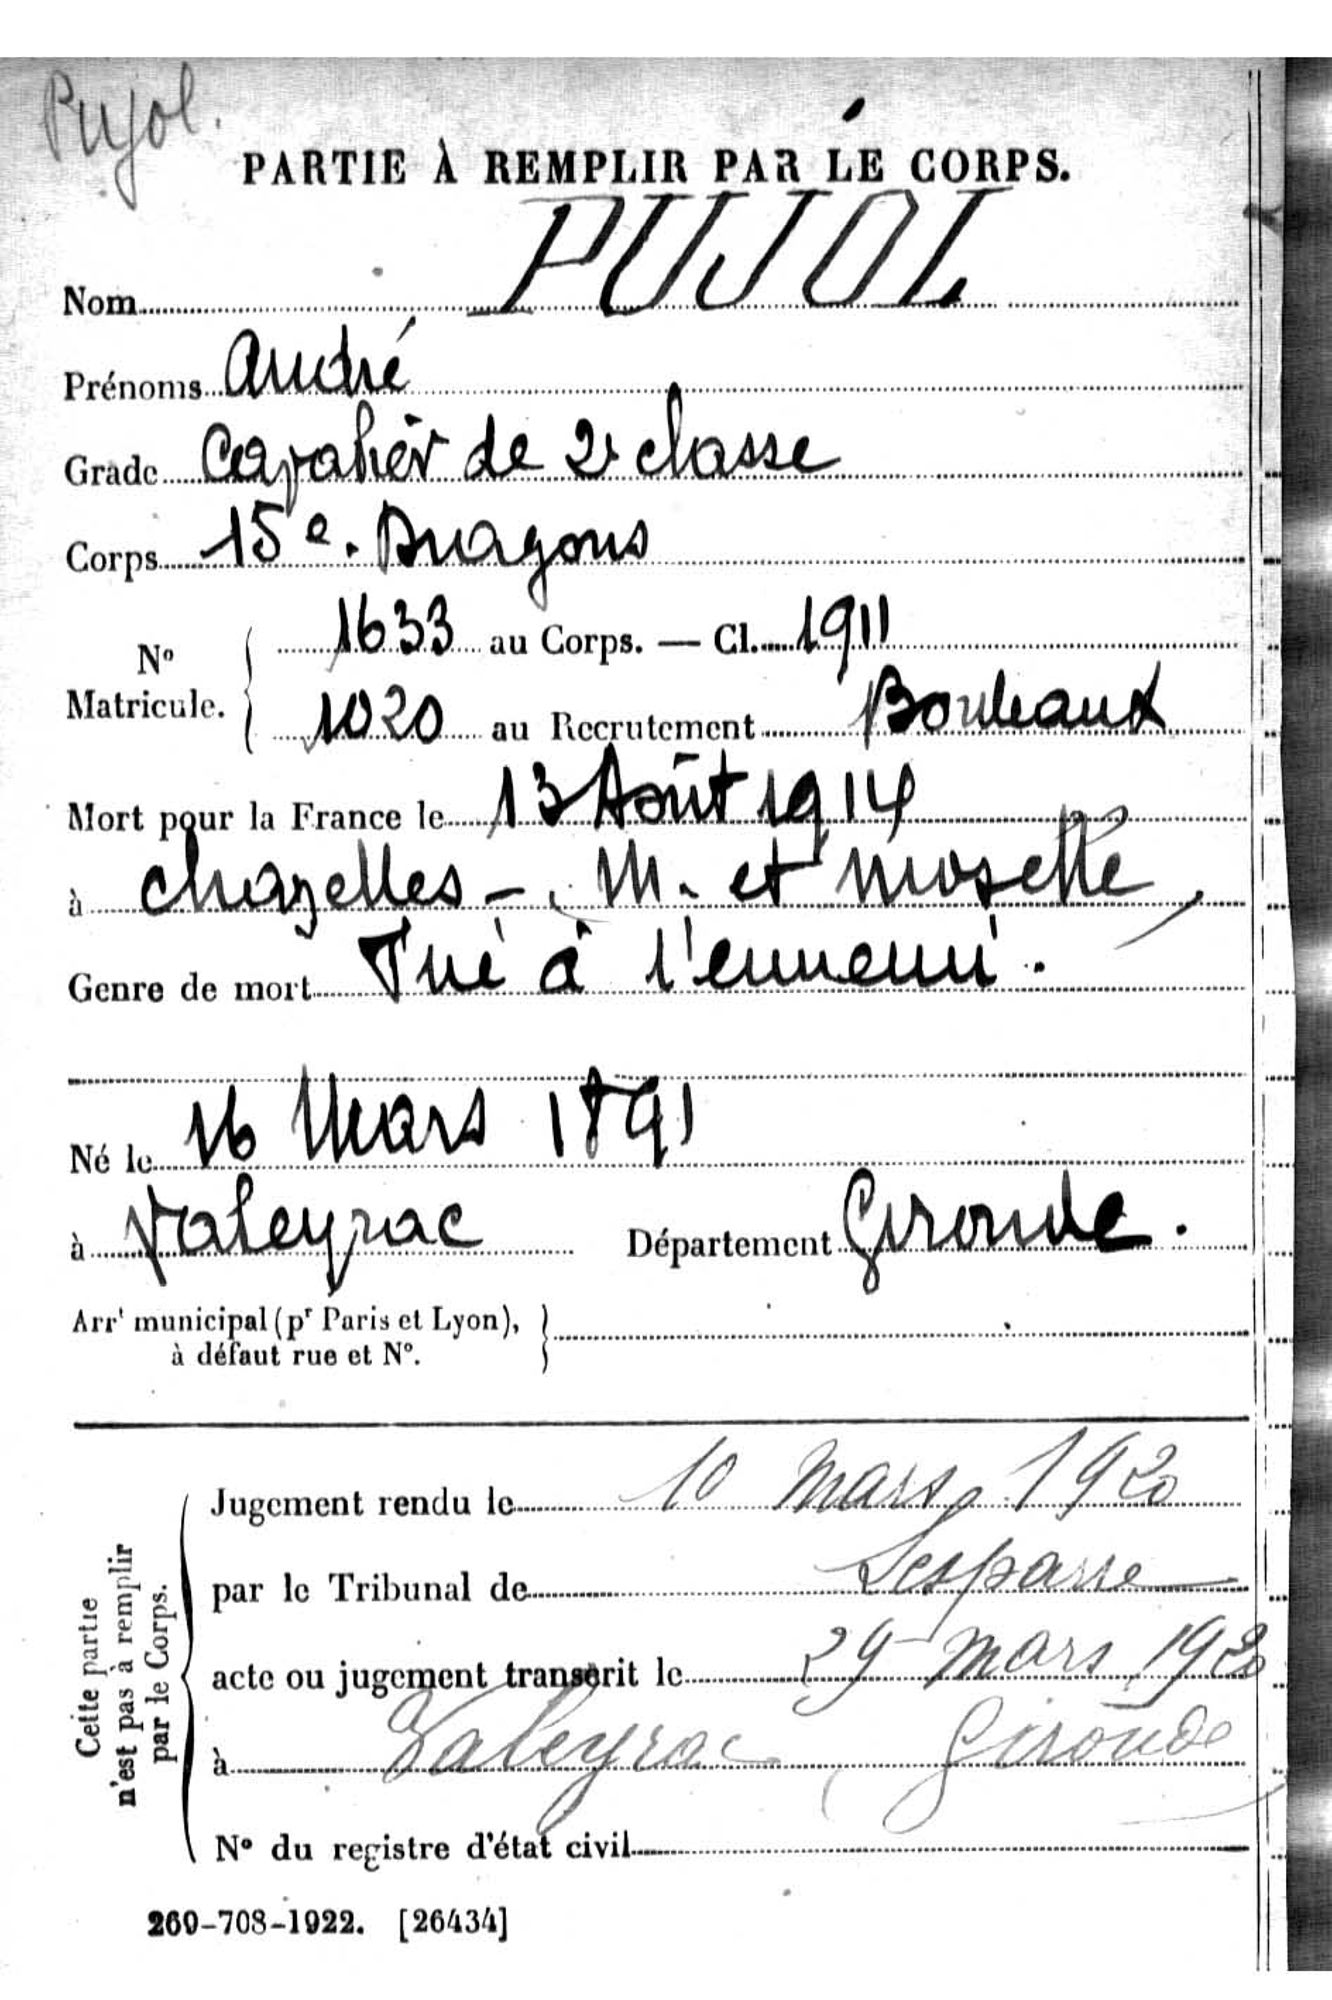 Pujol.
PARTIE À REMPLIR PAR LE CORPS.
Nom PUJOL
Prénoms André
Grade Cavalier de 2e classe
Corps 15e. Dragons
No Matricule. { 1633 au Corps. — Cl. 1911
1020 au Recrutement Bordeaux
Mort pour la France le 13 Août 1914
à Chazelles - M. et Moselle,
Genre de mort Tué à l'ennemi.
Né le 16 Mars 1891
à Valeyrac Département Gironde.
Arrt municipal (pr Paris et Lyon), }
à défaut rue et No.
Cette partie
n'est pas à remplir
par le Corps.
Jugement rendu le 10 mars 1920
par le Tribunal de Lesparre
acte ou jugement transcrit le 29 mars 1920
à Valeyrac (Gironde
No du registre d'état civil
260-708-1922. [26434]